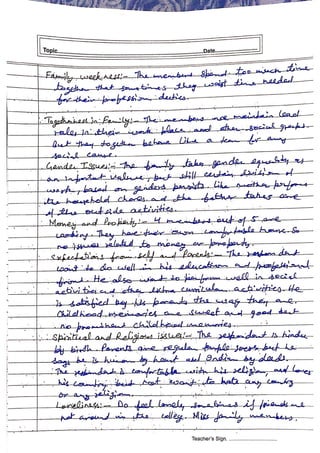 Topic Date
Family weekness:- The members spend too much time
together that sometimes they waist time needed
for their profession duties.
Togetherness in Family:- The members maintain lead
roles in their work place and other social groups.
But they together behave like a team for any
social cause.
Gender Issues:- The family takes gender equality as
an important value, but still certain division of
work, based on genders persists like mother performs
the household chores and the father takes care
of the outside activities.
Money and Property:- 4 members out of 5 are
working. They have their own comfortable house. So
no issues related to money or property.
Expectations from self and Parents:- The respondent
want to do well in his education and professional
front. He also want to perform well in social
activities and other extra curriculum activities. He
is satisfied by his parents the way they are.
Childhood memories are sweet and good but
no prominent childhood memories.
Spiritical and Religious issues:- The respondent is hindu
by birth. Parents are regular temple goers but he
says he is human by heart and Indian by deeds.
The respondent is comfortable with his religion, and loves
his country but not want to hate any country
or any religion.
Loneliness:- Do feel lonely sometimes if friends are
not around in the college. Miss family members.
Teacher's Sign.